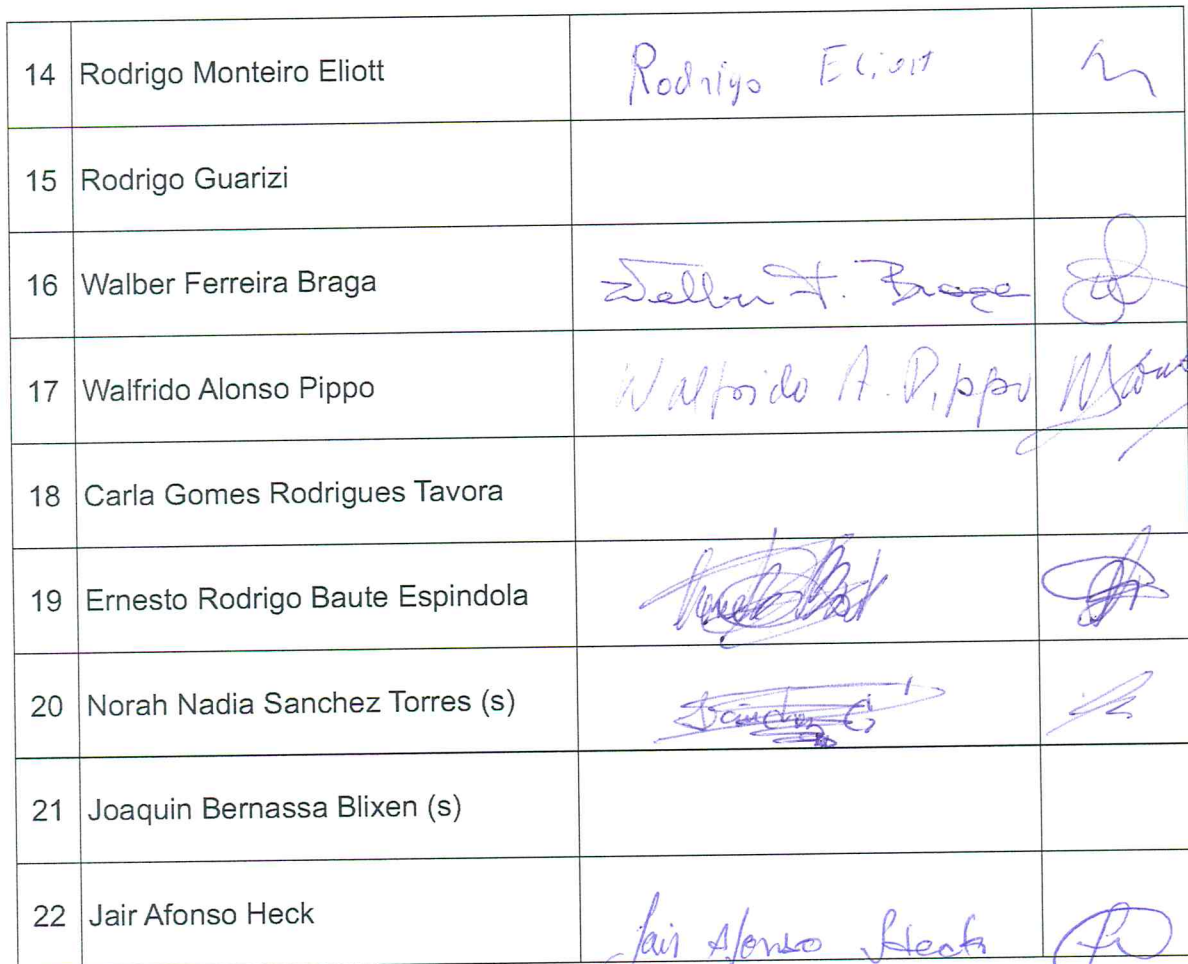 14 Rodrigo Monteiro Eliott Rodrigo Eliott
15 Rodrigo Guarizi
16 Walber Ferreira Braga Walber F. Braga
17 Walfrido Alonso Pippo Walfrido A. Pippo
18 Carla Gomes Rodrigues Tavora
19 Ernesto Rodrigo Baute Espindola
20 Norah Nadia Sanchez Torres (s) Sánchez
21 Joaquin Bernassa Blixen (s)
22 Jair Afonso Heck Jair Afonso Heck